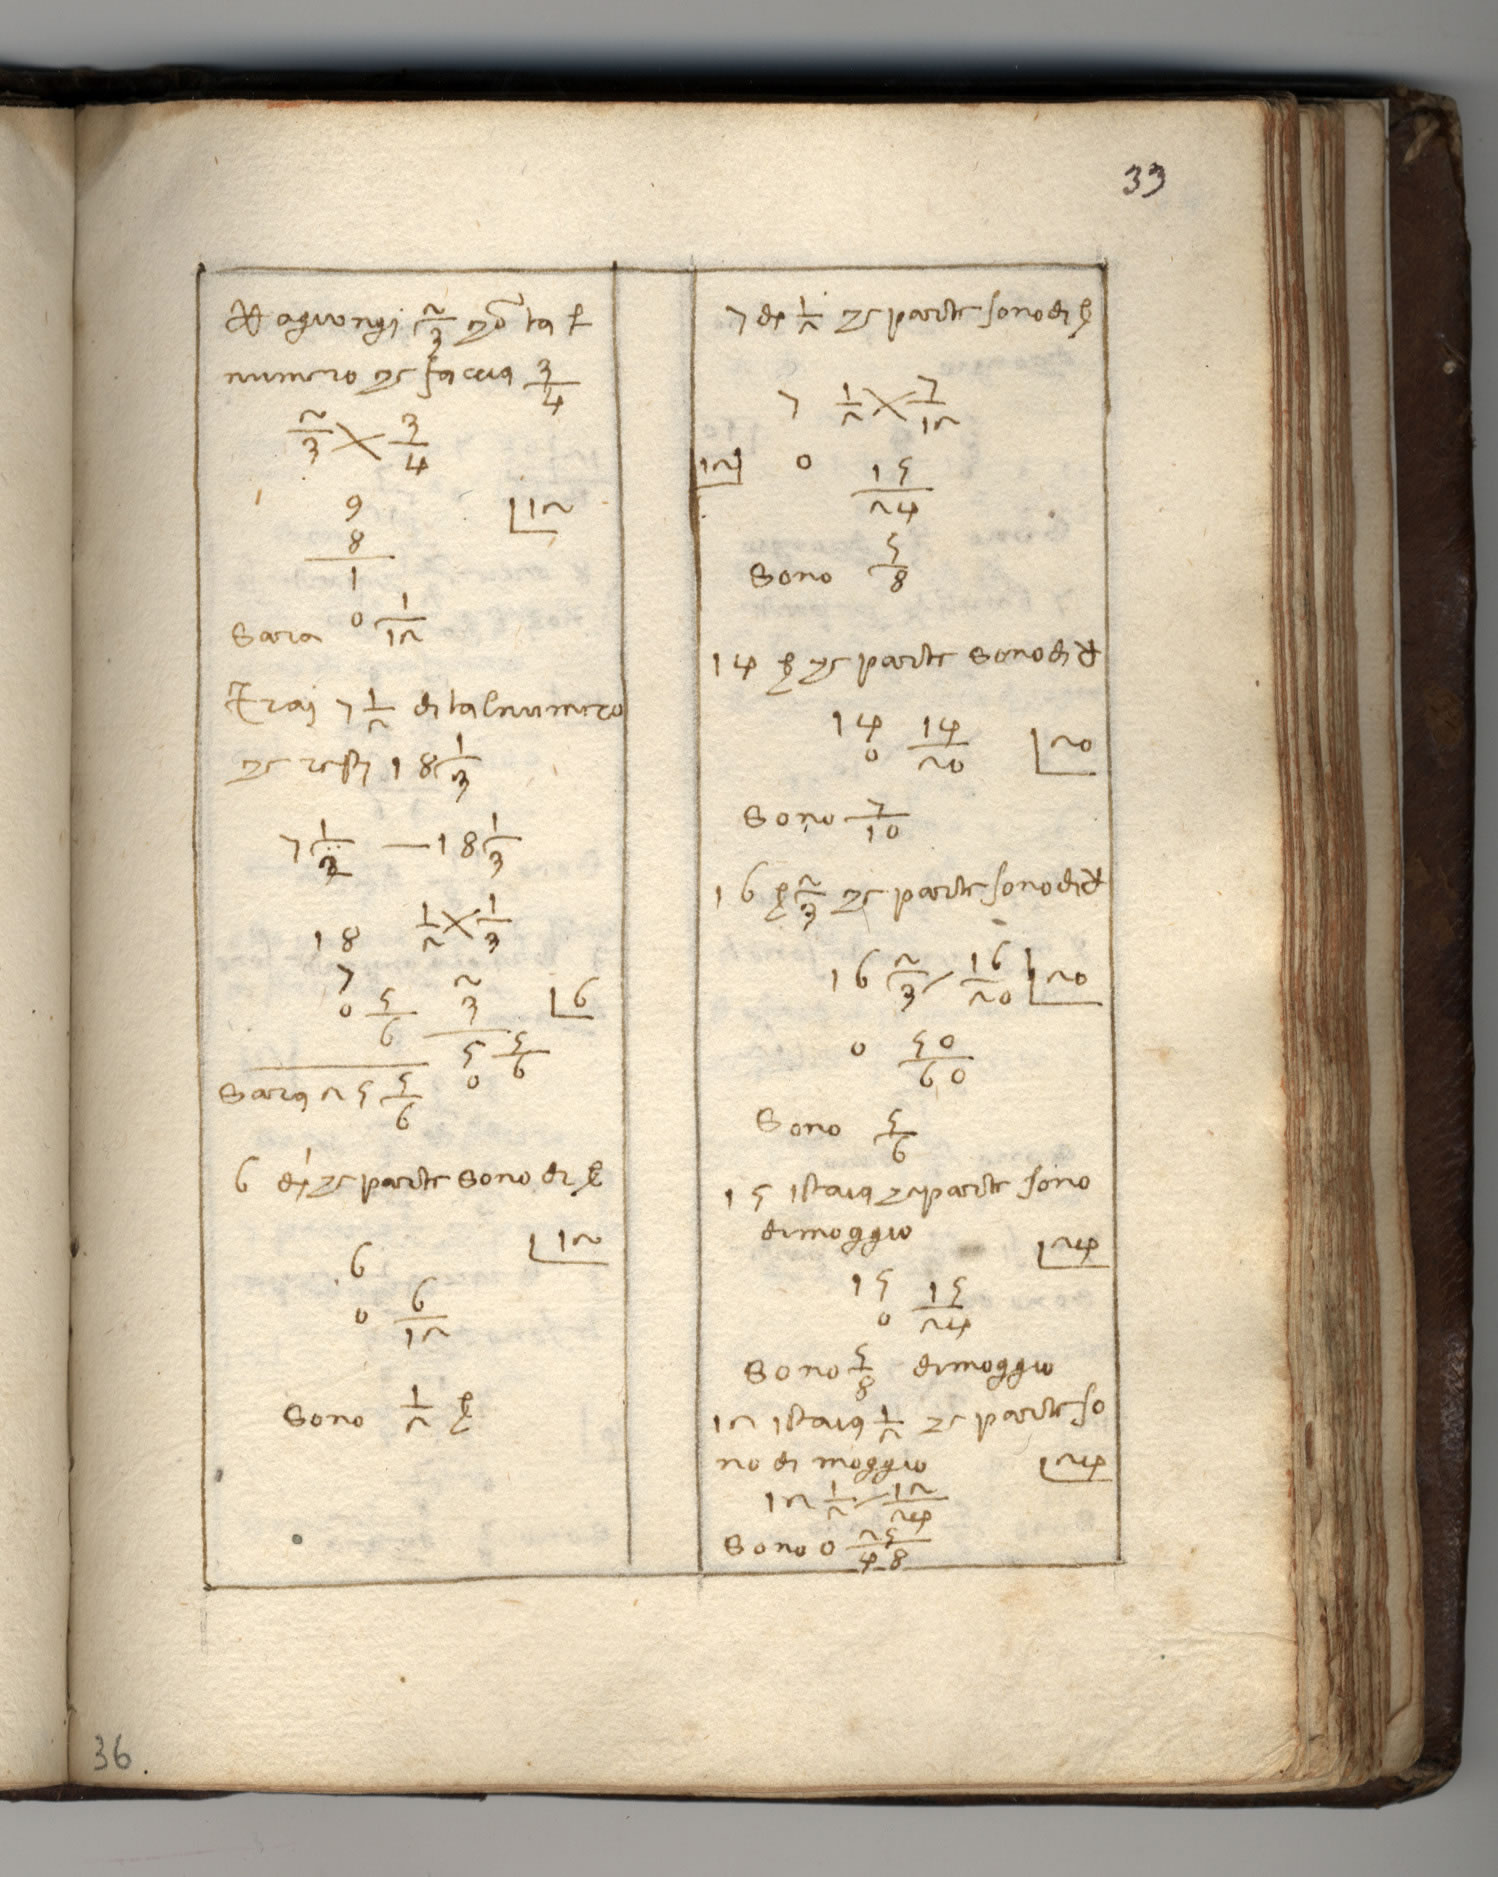 33
agiongi 2/3 tal
numero che faccia 3/4
2/3 × 3/4
9 12
8
1
Sara 0 1/12
Trai 7 1/2 di tal numero
che resti 18 1/3
7 1/2 — 18 1/3
18 1/2 × 1/3
7 2
0 5/6 3 6
5 5/6
0
Sara 25 5/6
6 che parte Sono di
12
6
0 6/12
Sono 1/2
7 1/2 che parte sono di
7 1/2 × 7/12
12 0 15/24
Sono 5/8
14 che parte Sono di
14 14/20 20
0
Sono 7/10
16 2/3 che parte sono di
16 2/3 16/20 20
0 50/60
Sono 5/6
15 staia che parte sono
di moggio 24
15 15/24
0
Sono 5/8 di moggio
12 staia 1/2 che parte so
no di moggio 24
12 1/2 12/24
Sono 0 25/48
36